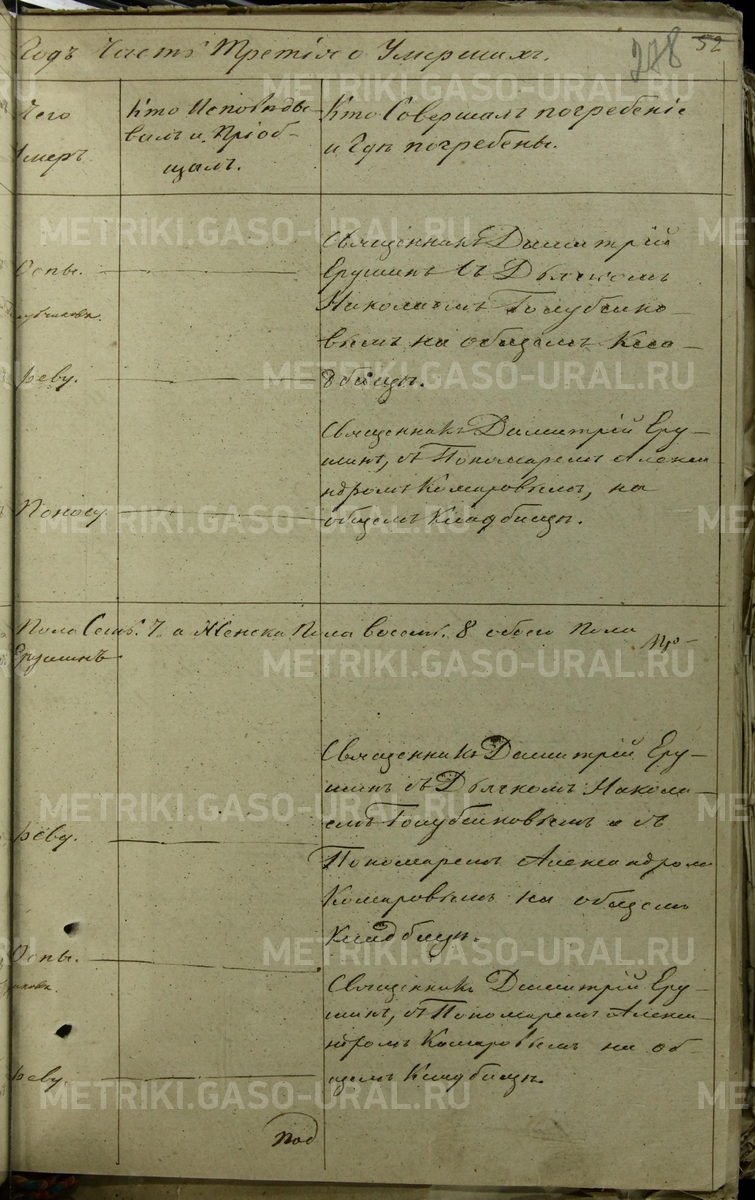 Годъ Часть Третiя о Умершихъ.
248 52
Чего Умеръ.
Кто Исповѣды-
валъ и Прiоб-
щалъ.
Кто Совершалъ погребенiе
и Гдѣ погребены.
Священникъ Димитрiй
Оспы.
Ерушинъ съ Дьячкомъ
Николаемъ Голубчико-
вымъ на общемъ Клa-
реву.
дбищѣ.
Священникъ Димитрiй Еру-
шинъ, съ Пономаремъ Алекса-
ндромъ Комаровымъ, на
Поносу.
общемъ Кладбищѣ.
Пола Семь. 7. а Женска Пола восемь. 8 обоего Пола
Ерушинъ
Священникъ Димитрiй Еру-
шинъ съ Дьячкомъ Никола-
емъ Голубчиковымъ и съ
реву.
Пономаремъ Александромъ
Комаровымъ на общемъ
Кладбищѣ.
Оспы.
Священникъ Димитрiй Еру-
шинъ, съ Пономаремъ Алекса-
ндромъ Комаровымъ на об-
реву.
щемъ Кладбищѣ.
Под
METRIKI.GASO-URAL.RU